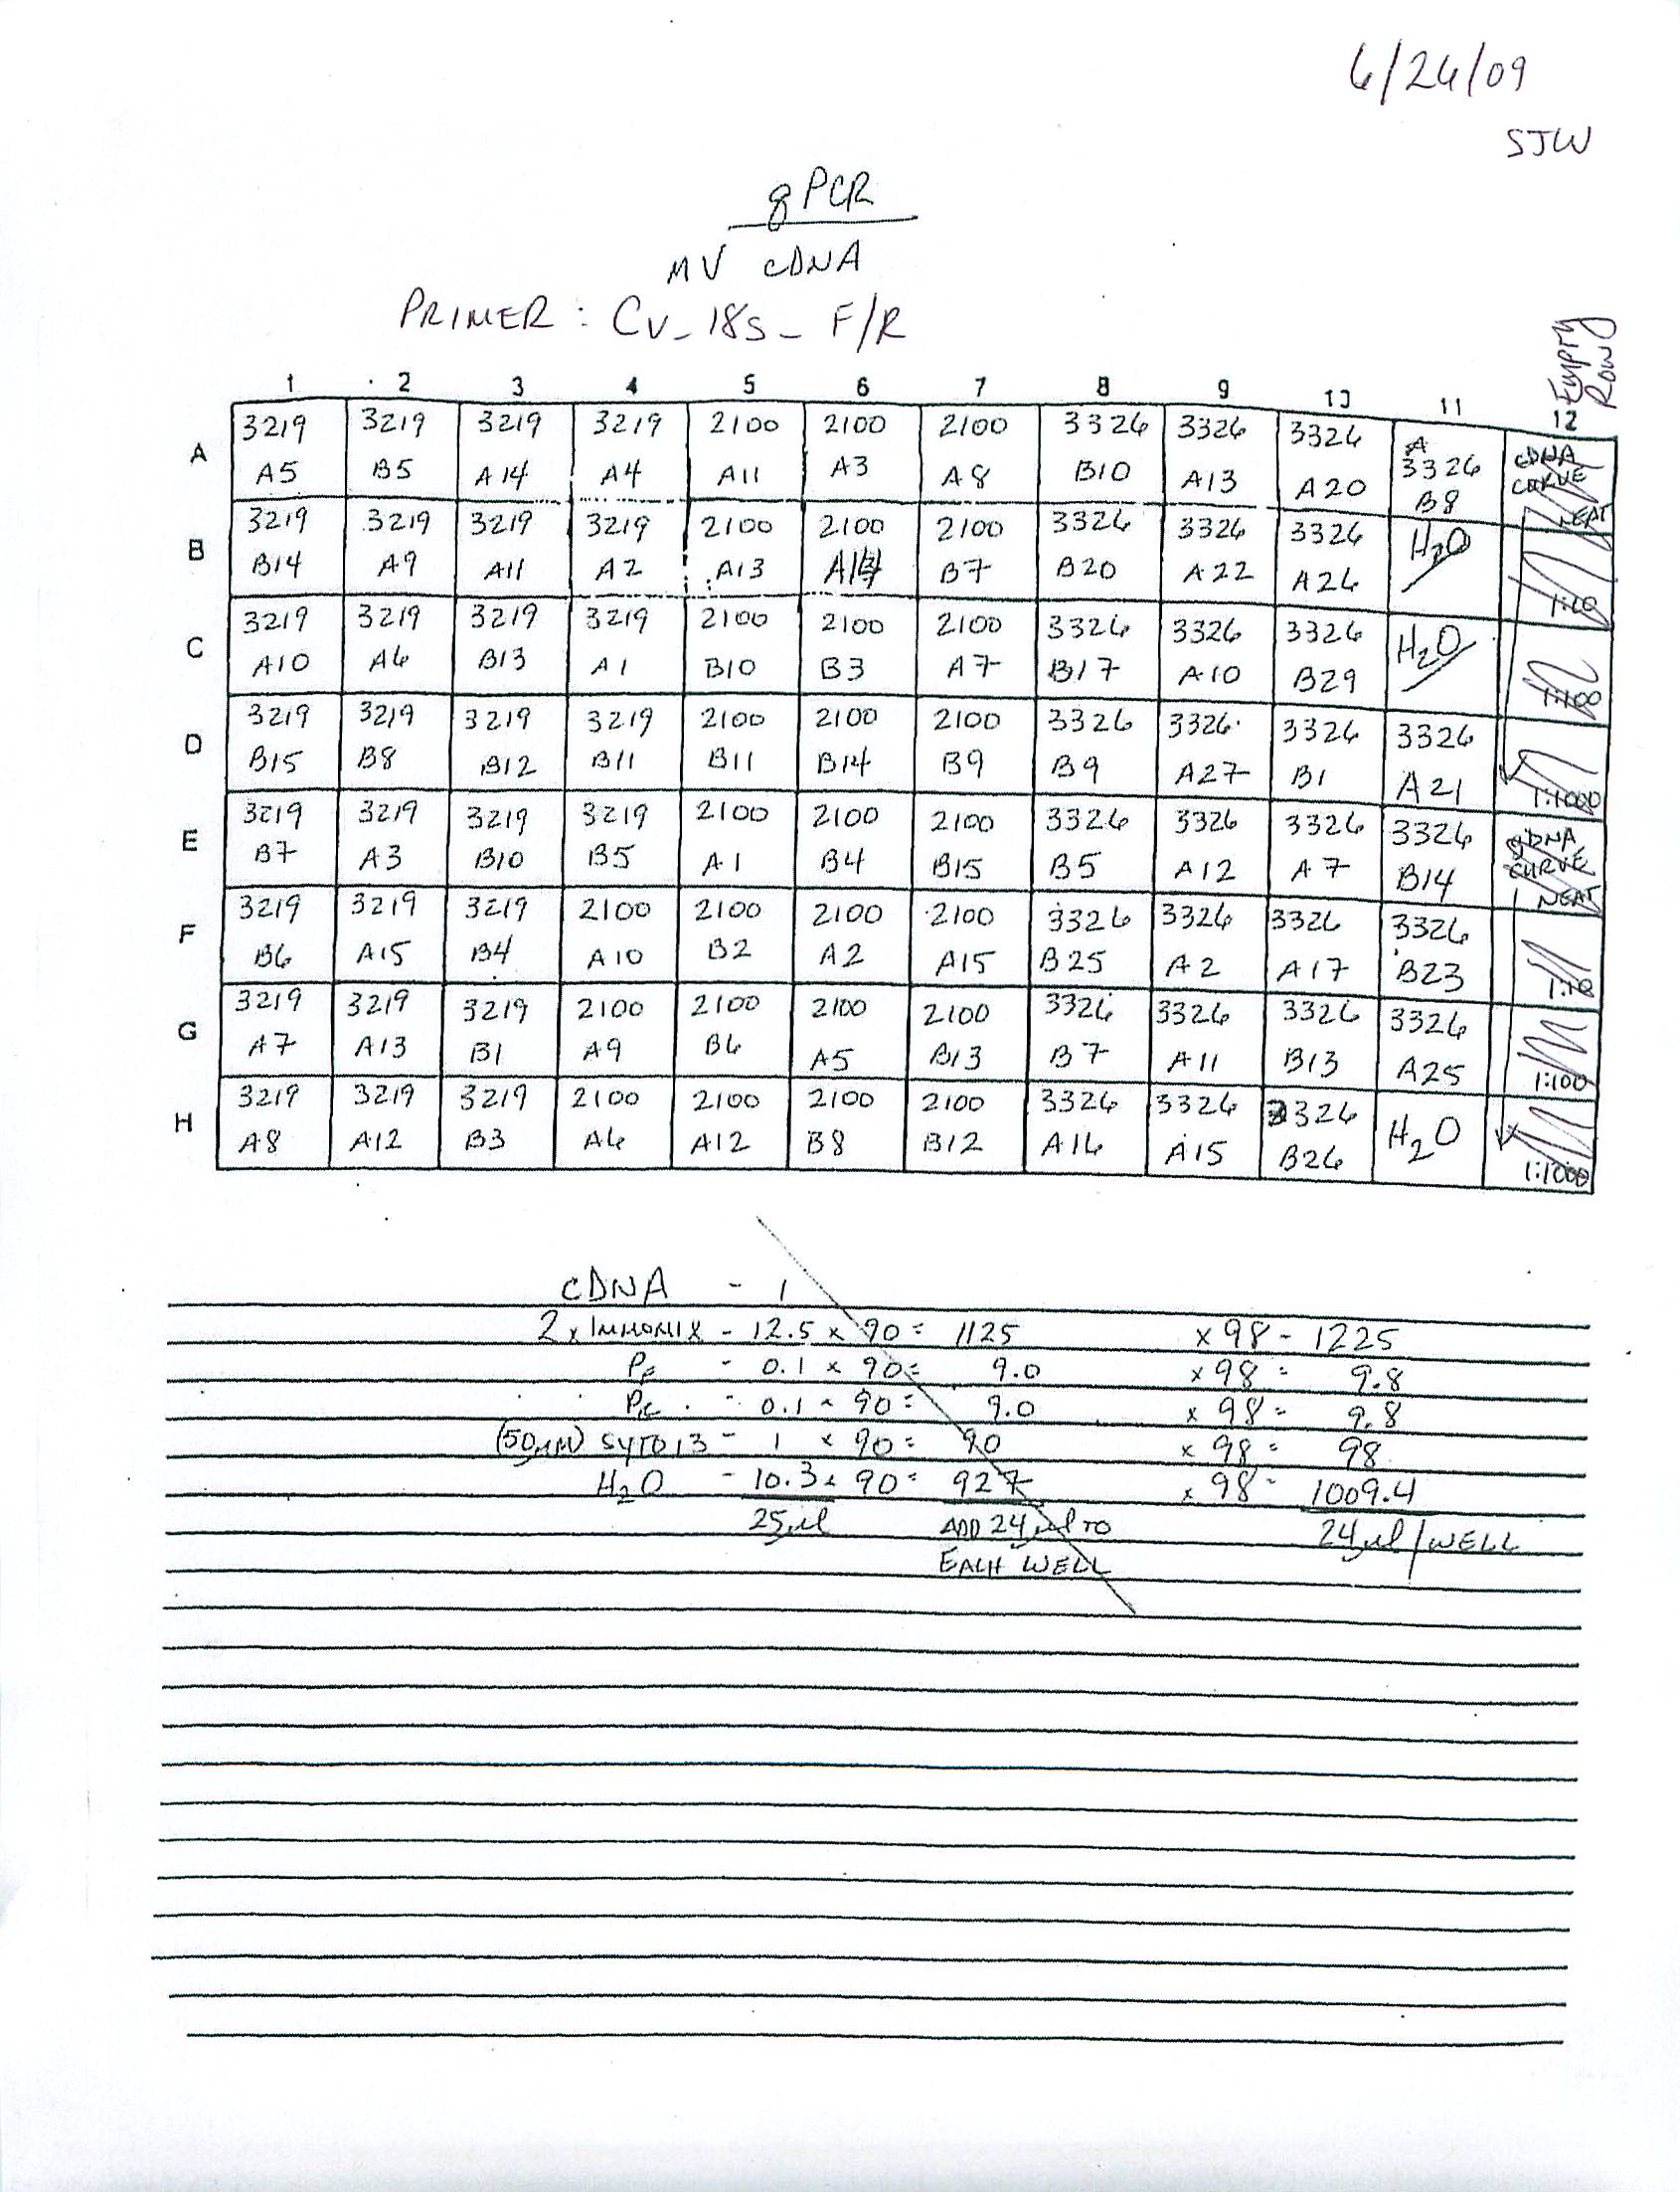 6/26/09
SJW
qPCR
MV cDNA
PRIMER: Cv_18s_F/R
Empty
Row
1 2 3 4 5 6 7 8 9 10 11 12
A 3219 3219 3219 3219 2100 2100 2100 3326 3326 3326 3326 cDNA CURVE
A5 B5 A14 A4 A11 A3 A8 B10 A13 A20 B8 NEAT
B 3219 3219 3219 3219 2100 2100 2100 3326 3326 3326 H2O
B14 A9 A11 A2 A13 B7 B20 A22 A26 1:10
C 3219 3219 3219 3219 2100 2100 2100 3326 3326 3326 H2O
A10 A6 B13 A1 B10 B3 A7 B17 A10 B29 1:100
D 3219 3219 3219 3219 2100 2100 2100 3326 3326 3326 3326
B15 B8 B12 B11 B11 B14 B9 B9 A27 B1 A21 1:1000
E 3219 3219 3219 3219 2100 2100 2100 3326 3326 3326 3326 gDNA CURVE
B7 A3 B10 B5 A1 B4 B15 B5 A12 A7 B14 NEAT
F 3219 3219 3219 2100 2100 2100 2100 3326 3326 3326 3326
B6 A15 B4 A10 B2 A2 A15 B25 A2 A17 B23 1:10
G 3219 3219 3219 2100 2100 2100 2100 3326 3326 3326 3326
A7 A13 B1 A9 B6 A5 B13 B7 A11 B13 A25 1:100
H 3219 3219 3219 2100 2100 2100 2100 3326 3326 3326 H2O
A8 A12 B3 A6 A12 B8 B12 A16 A15 B26 1:1000
cDNA - 1
2x IMMOMIX - 12.5 x 90 = 1125 x 98 - 1225
PF - 0.1 x 90 = 9.0 x 98 = 9.8
PR - 0.1 x 90 = 9.0 x 98 = 9.8
(50µM) SYTO13 - 1 x 90 = 90 x 98 = 98
H2O - 10.3 x 90 = 927 x 98 = 1009.4
25µl ADD 24µl TO 24µl/WELL
EACH WELL